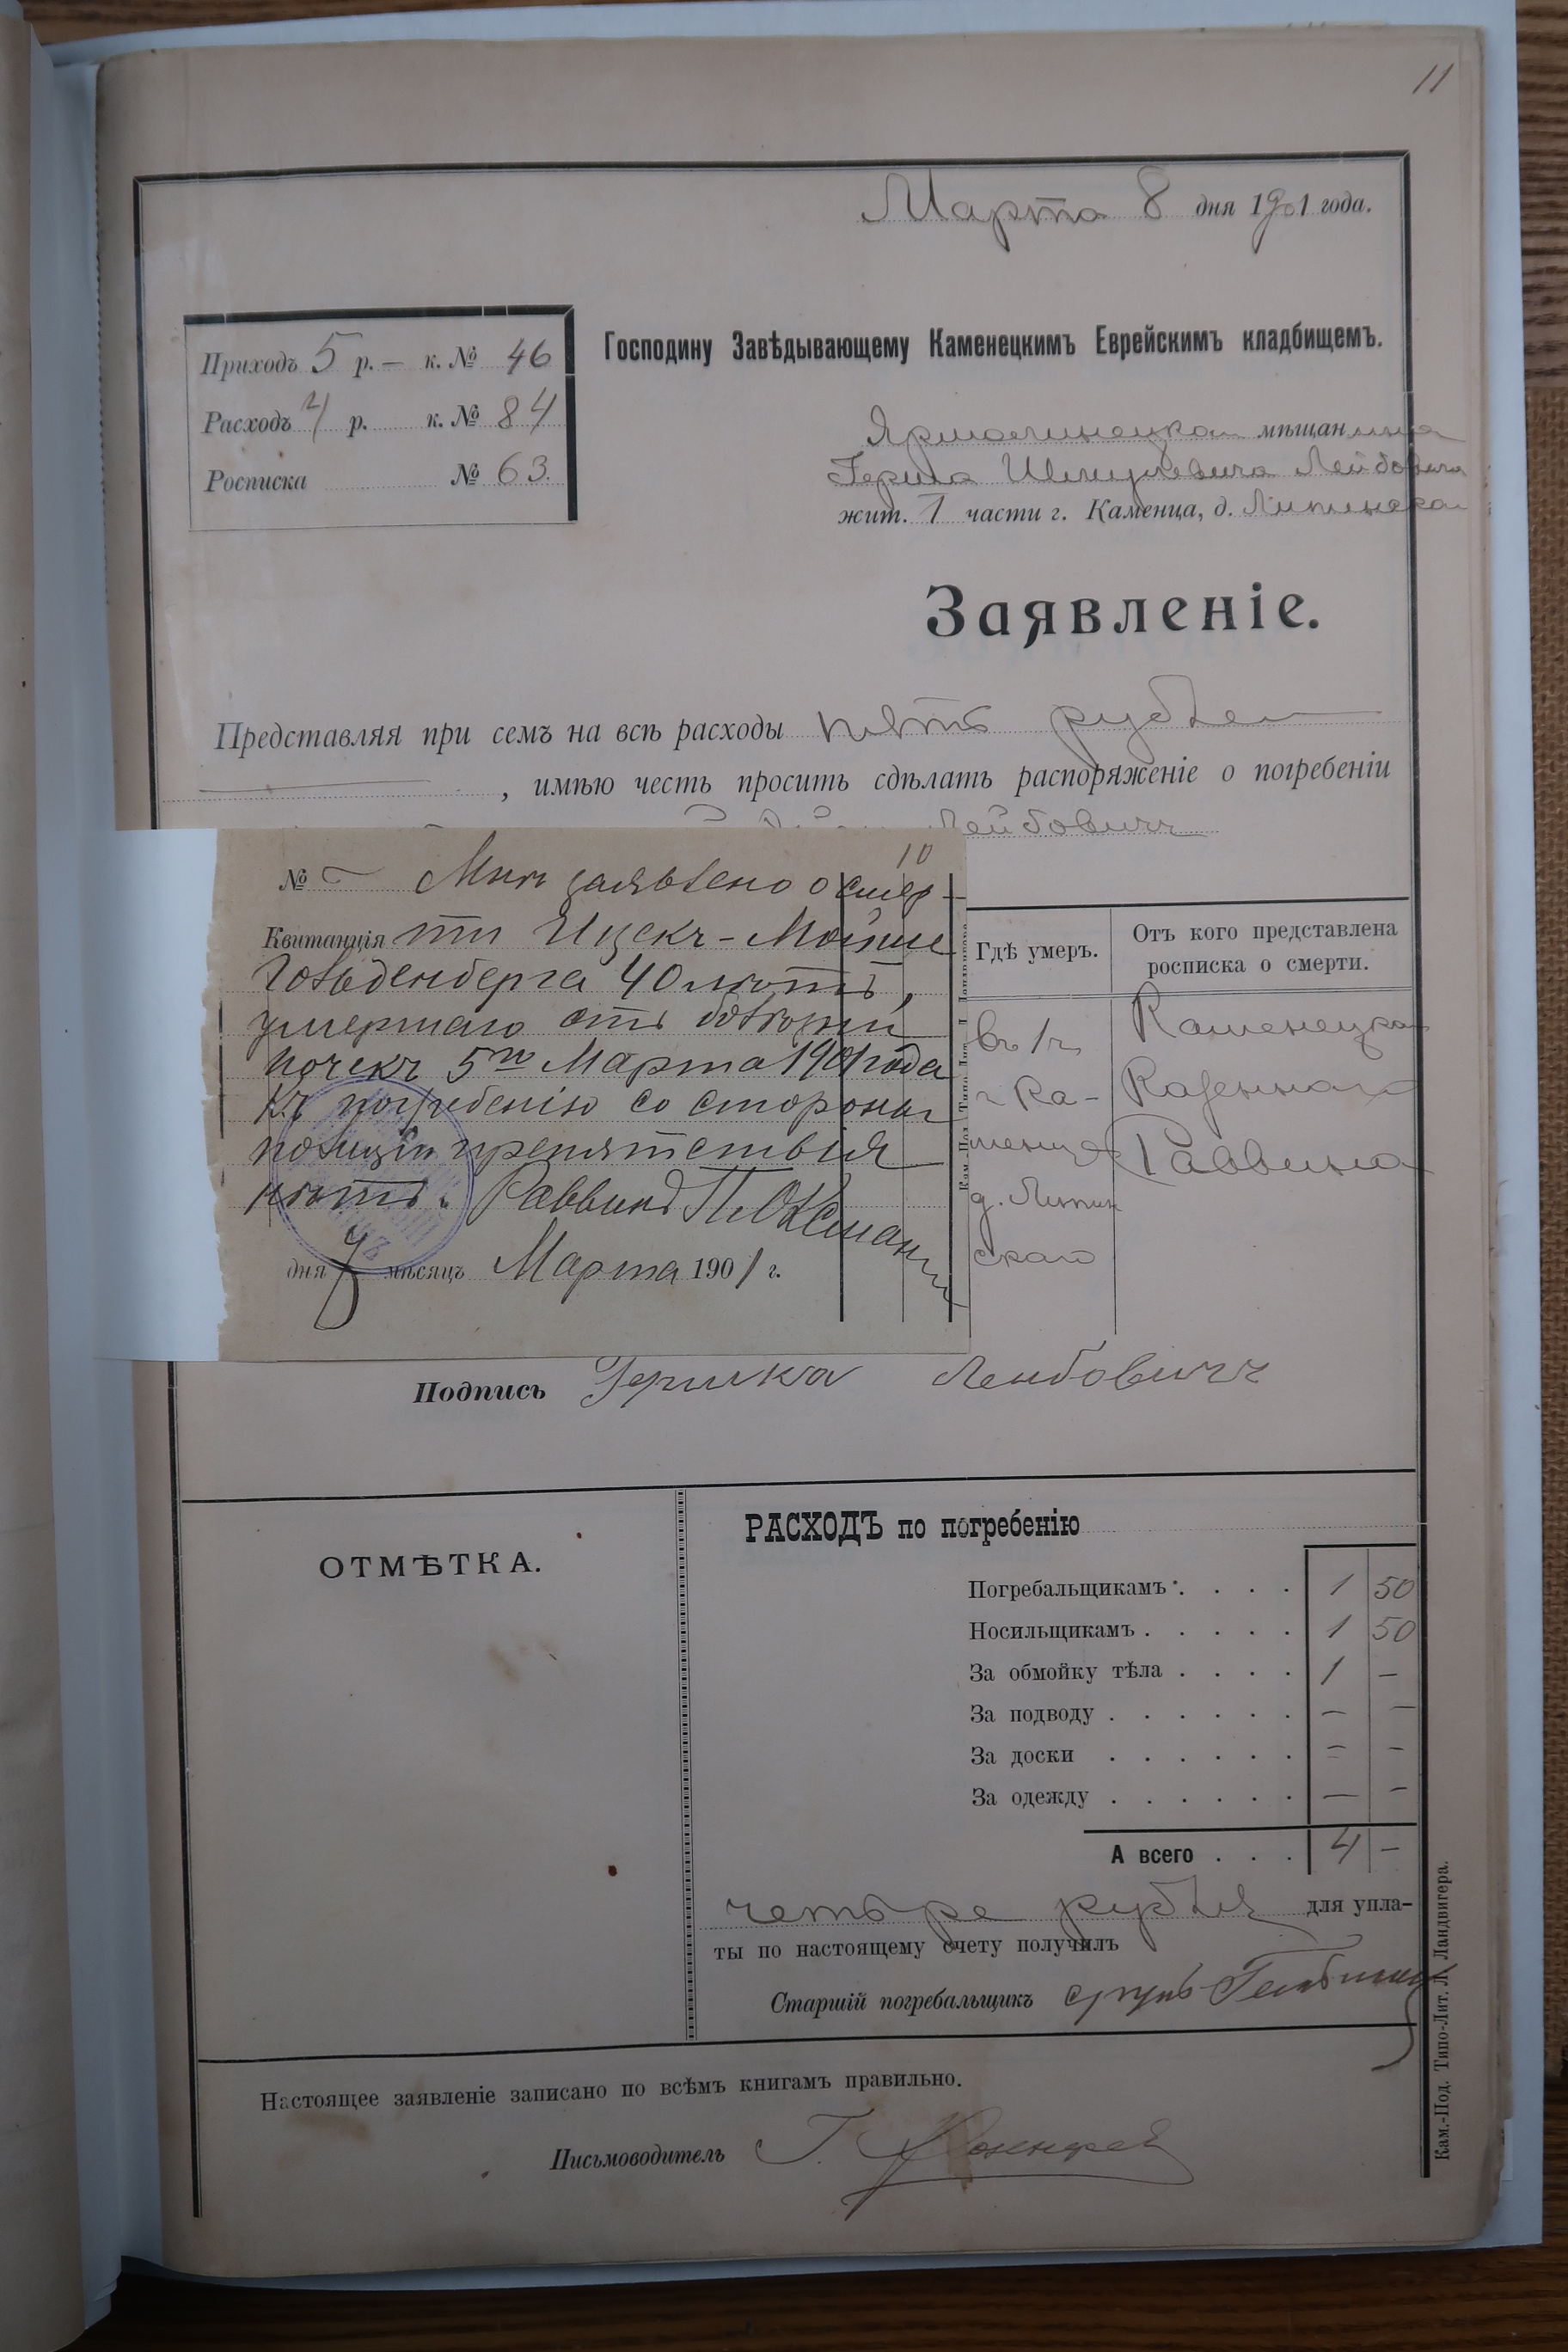 11
Марта 8 дня 1901 года.
Приходъ 5 р. — к. № 46
Расходъ 4 р. к. № 84
Росписка № 63.
Господину Завѣдывающему Каменецкимъ Еврейскимъ кладбищемъ.
Ярмолинецкаго мѣщанина
Герша Шмулевича Лейбовича
жит. 1 части г. Каменца, д. Литинскаго
Заявленіе.
Представляя при семъ на всѣ расходы пять рублей
, имѣю честь просить сдѣлать распоряженіе о погребеніи
Лейбовичъ
10
№ Мнѣ заявлено о смер-
Квитанція ти Ицекъ-Мойше
Гольденберга 40 лѣтъ,
умершаго отъ болѣзни
почекъ 5го Марта 1901 года
Къ погребенію со стороны
полиціи препятствія
нѣтъ. Раввинъ П. Оксманъ
дня 7 мѣсяцъ Марта 1901 г.
Гдѣ умеръ.
Отъ кого представлена
росписка о смерти.
въ 1 ч.
г. Ка-
менца
д. Литин
скаго
Каменецкаго
Казеннаго
Раввина
Подпись Гершка Лейбовичъ
ОТМѢТКА.
РАСХОДЪ по погребенію
Погребальщикамъ . . . . 1 50
Носильщикамъ . . . . . 1 50
За обмойку тѣла . . . . 1 —
За подводу . . . . . . — —
За доски . . . . . . — —
За одежду . . . . . . — —
А всего . . . 4 —
четыре рубля для упла-
ты по настоящему счету получилъ
Старшій погребальщикъ
Настоящее заявленіе записано по всѣмъ книгамъ правильно.
Письмоводитель Г.
Кам.-Под. Типо-Лит. Л. Ландвигера.